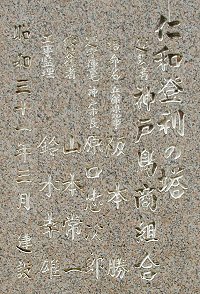 仁和登利の塔
建立者 神戸鳥商組合
阪本勝
神戸市長 原口忠次郎
山本常一
工事監理 鈴木幸雄
昭和三十一年三月 建設